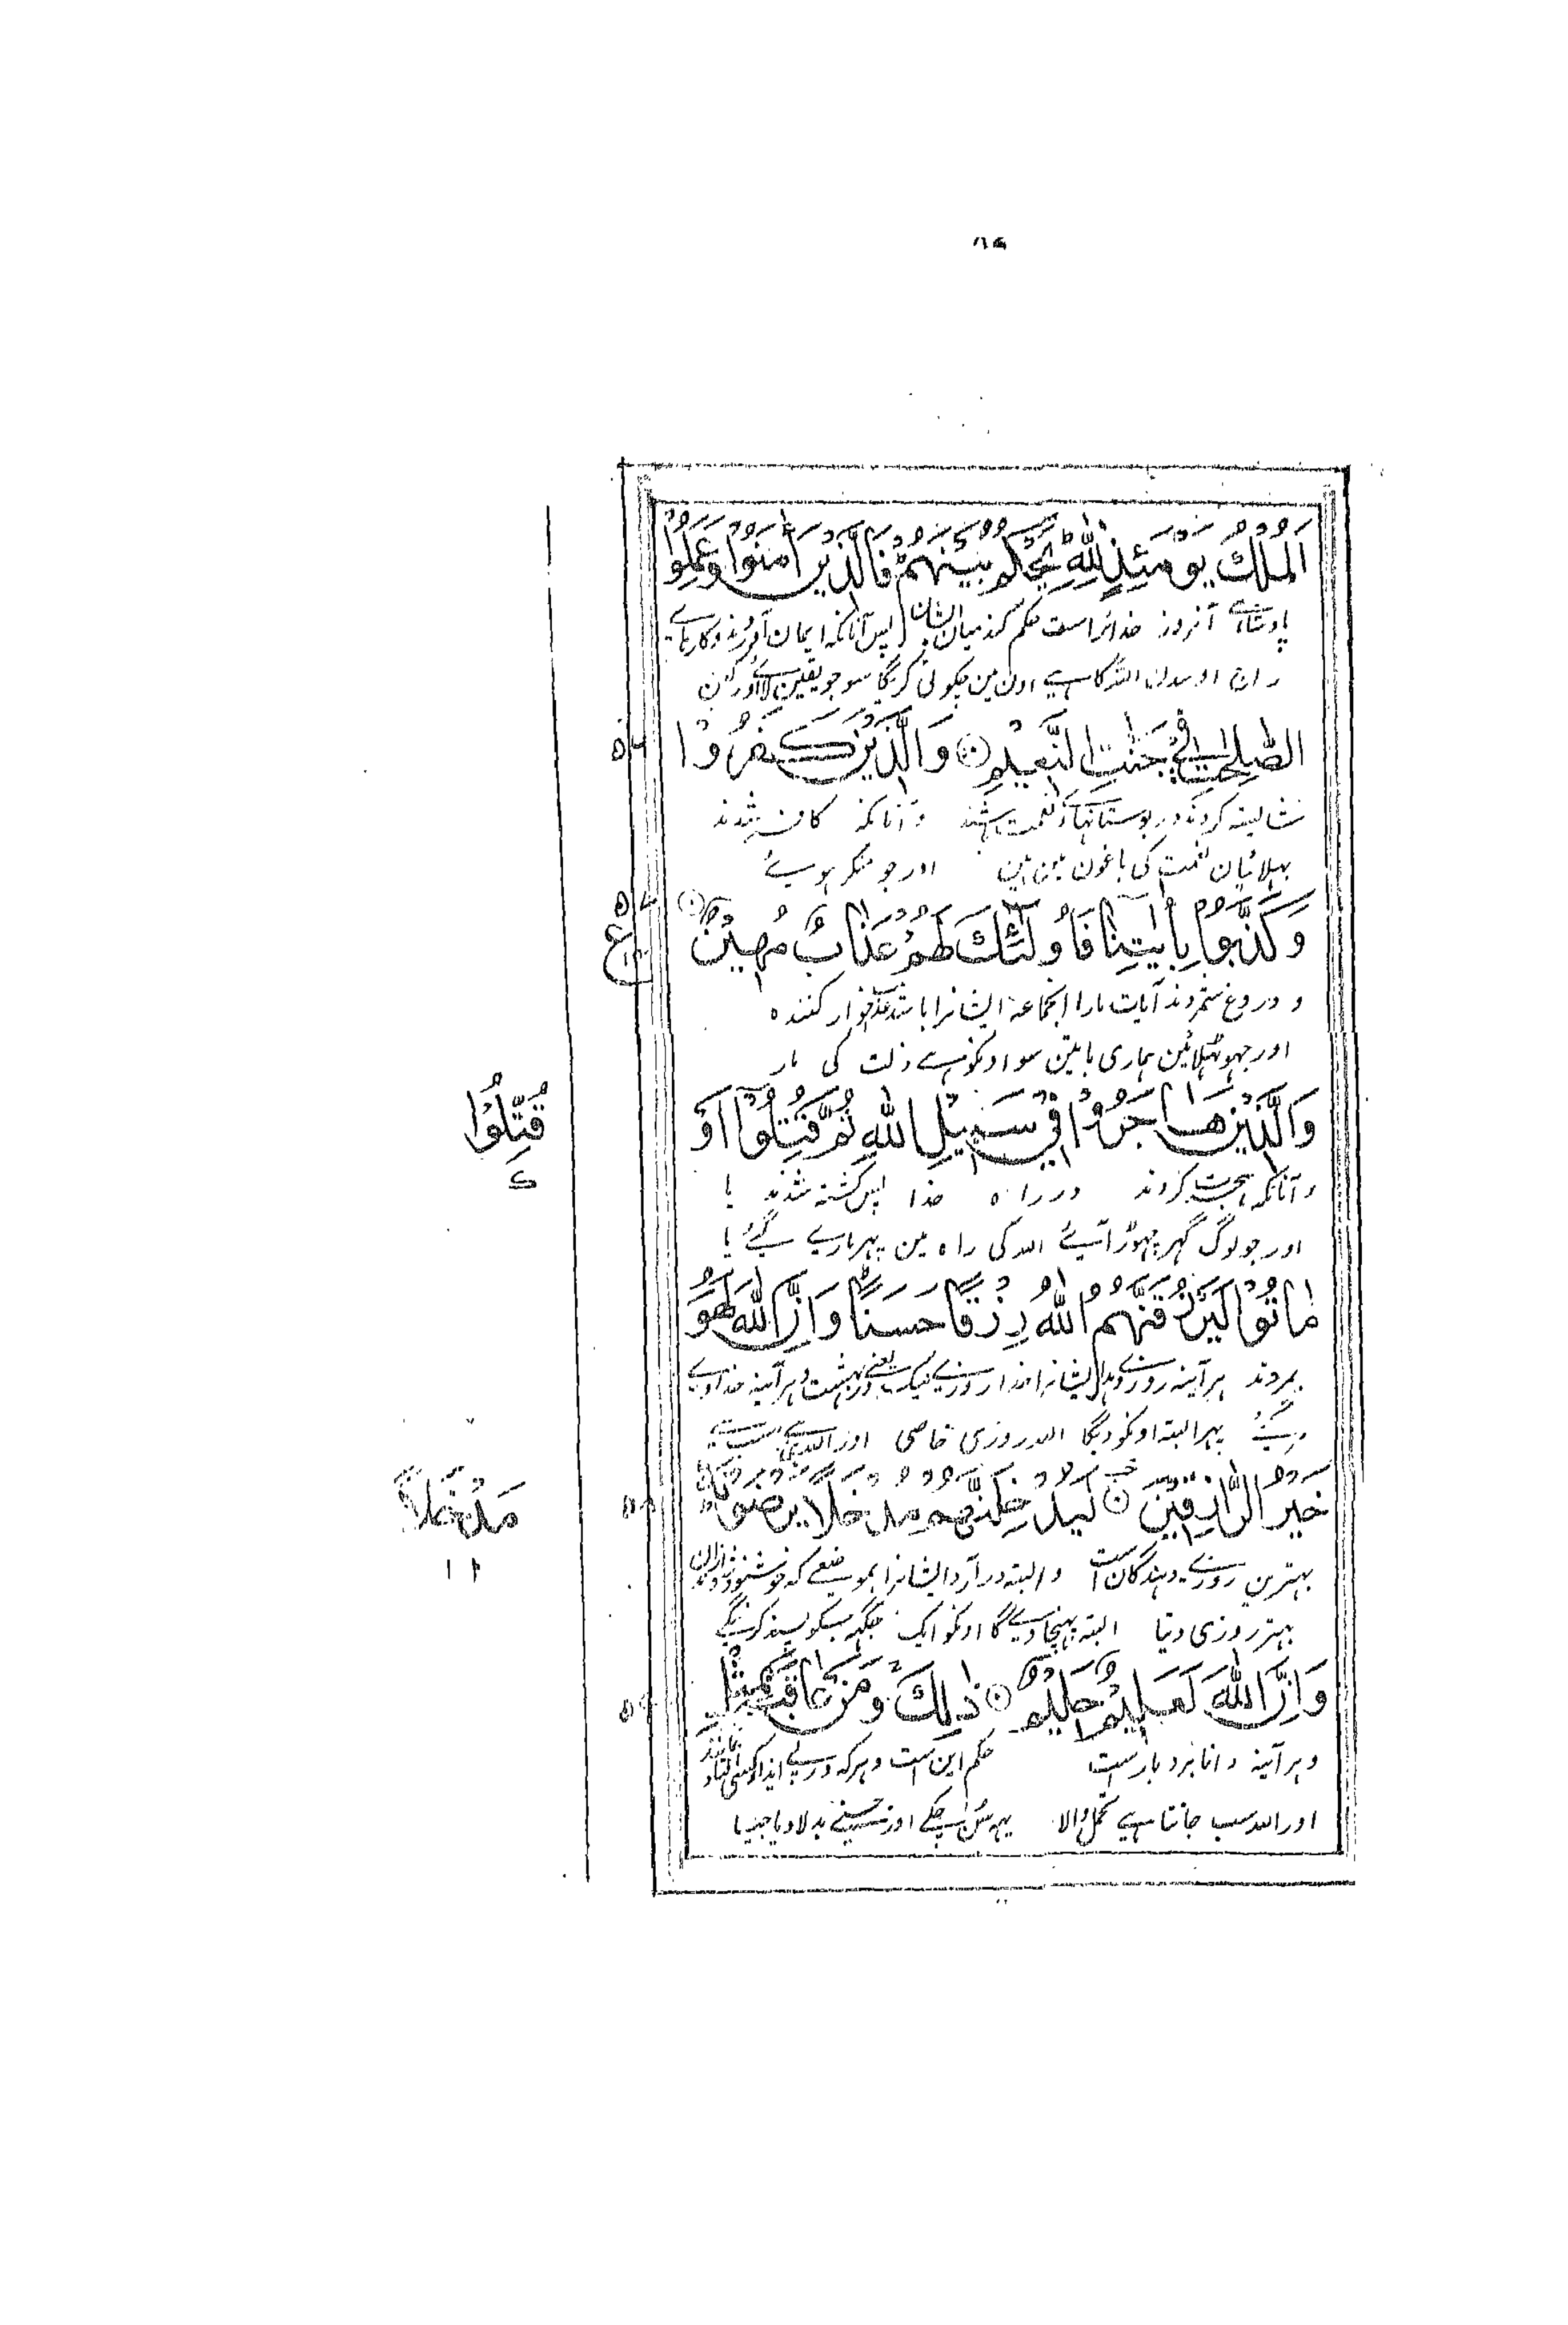 اَلْمُلْكُ يَوْمَئِذٍ لِلّٰهِ يَحْكُمُ بَيْنَهُمْ فَالَّذِيْنَ اٰمَنُوْا وَعَمِلُوا
پادشاهے آنروز خدائراست حکم کند میان ایشان پس آنانکه ایمان آوردند و کارہاے
راج اوسدن اللہ کا ہے اون مین چکوتی کریگا سو جو یقین لائے اور کین
الصّٰلِحٰتِ فِيْ جَنّٰتِ النَّعِيْمِ ۝ وَالَّذِيْنَ كَفَرُوْا
۵۶
شایسته کردند در بوستانہاے نعمت باشند و آنانکه کافر شدند
بہلائیان نعمت کی باغون مین ہین اور جو منکر ہوئے
وَكَذَّبُوْا بِاٰيٰتِنَا فَاُولٰٓئِكَ لَهُمْ عَذَابٌ مُهِيْنٌ ۝
۵۷
ع
و دروغ شمردند آیات مارا آنجماعه ایشانرا باشد عذاب خوار کننده
اور جہوٹہلائین ہماری باتین سو اونکو ہے ذلت کی مار
وَالَّذِيْنَ هَاجَرُوْا فِيْ سَبِيْلِ اللّٰهِ ثُمَّ قُتِلُوْا اَوْ
قُتِّلُوْا
ک
و آنانکه ہجرت کردند در راه خدا پس کشته شدند یا
اور جو لوگ گہر چہوڑ آئے اللہ کی راہ مین پہر مارے گئے یا
مَاتُوْا لَيَرْزُقَنَّهُمُ اللّٰهُ رِزْقًا حَسَنًا وَاِنَّ اللّٰهَ لَهُوَ
بمردند ہر آینه روزے دہد ایشانرا خدا روزے نیک یعنے در بہشت و ہر آینه خدا وے
مرگئے پہر البته اونکو دیگا اللہ روزی خاصی اور اللہ ہے سب سے
خَيْرُ الرَّازِقِيْنَ ۝ لَيُدْخِلَنَّهُمْ مُدْخَلًا يَرْضَوْنَهُ
۵۸
مَدْخَلًا
بہترین روزے دہندگان است و البته در آرد ایشانرا بموضعے که خوشنود شوند ازان
بہتر روزی دیتا البته پہنچاویگا اونکو ایک جگہہ جسکو پسند کرینگے
وَاِنَّ اللّٰهَ لَعَلِيْمٌ حَلِيْمٌ ۝ ذٰلِكَ وَمَنْ عَاقَبَ بِمِثْلِ
۵۹
و ہر آینه دانا بردبار است حکم این است و ہرکه
اور اللہ سب جانتا ہے تحمل والا یہہ سن چکے اور جسنے بدلا دیا جیسا